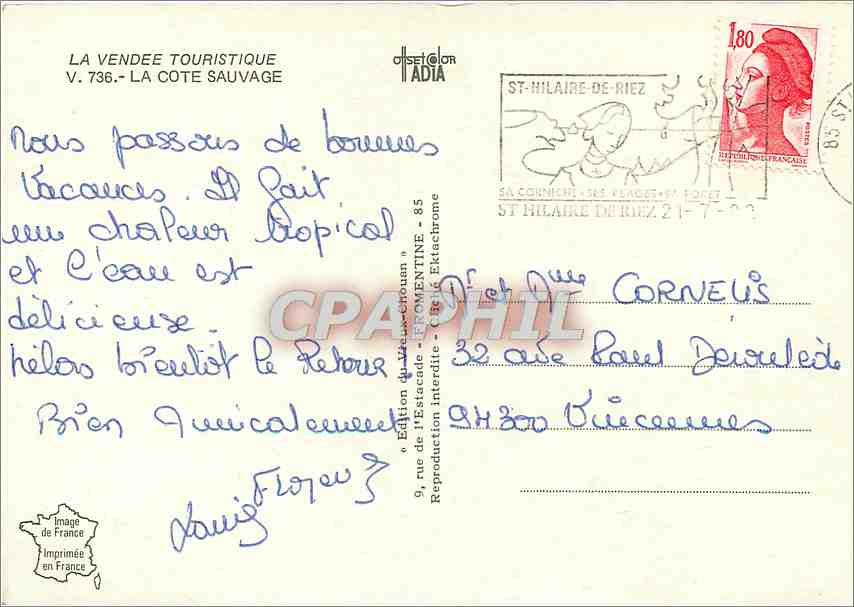 LA VENDEE TOURISTIQUE
V. 736.- LA COTE SAUVAGE
offset color
IADIA
1,80
POSTES
REPUBLIQUE FRANÇAISE
ST-HILAIRE-DE-RIEZ
SA CORNICHE-SES PLAGES-SA FORET
ST HILAIRE DE RIEZ 21-7-
85 ST
Nous passons de bonnes
Vacances. Il fait
une chaleur tropical
et l'eau est
délicieuse.
hélas bientôt le Retour.
Bien Amicalement
Louis
« Edition du Vieux-Chouan »
9, rue de l'Estacade - FROMENTINE - 85
Reproduction interdite - Cliché Ektachrome
CPAPHIL
Dr et Mme CORNELIS
32 ave Paul Déroulède
94300 Vincennes
Image
de France
Imprimée
en France